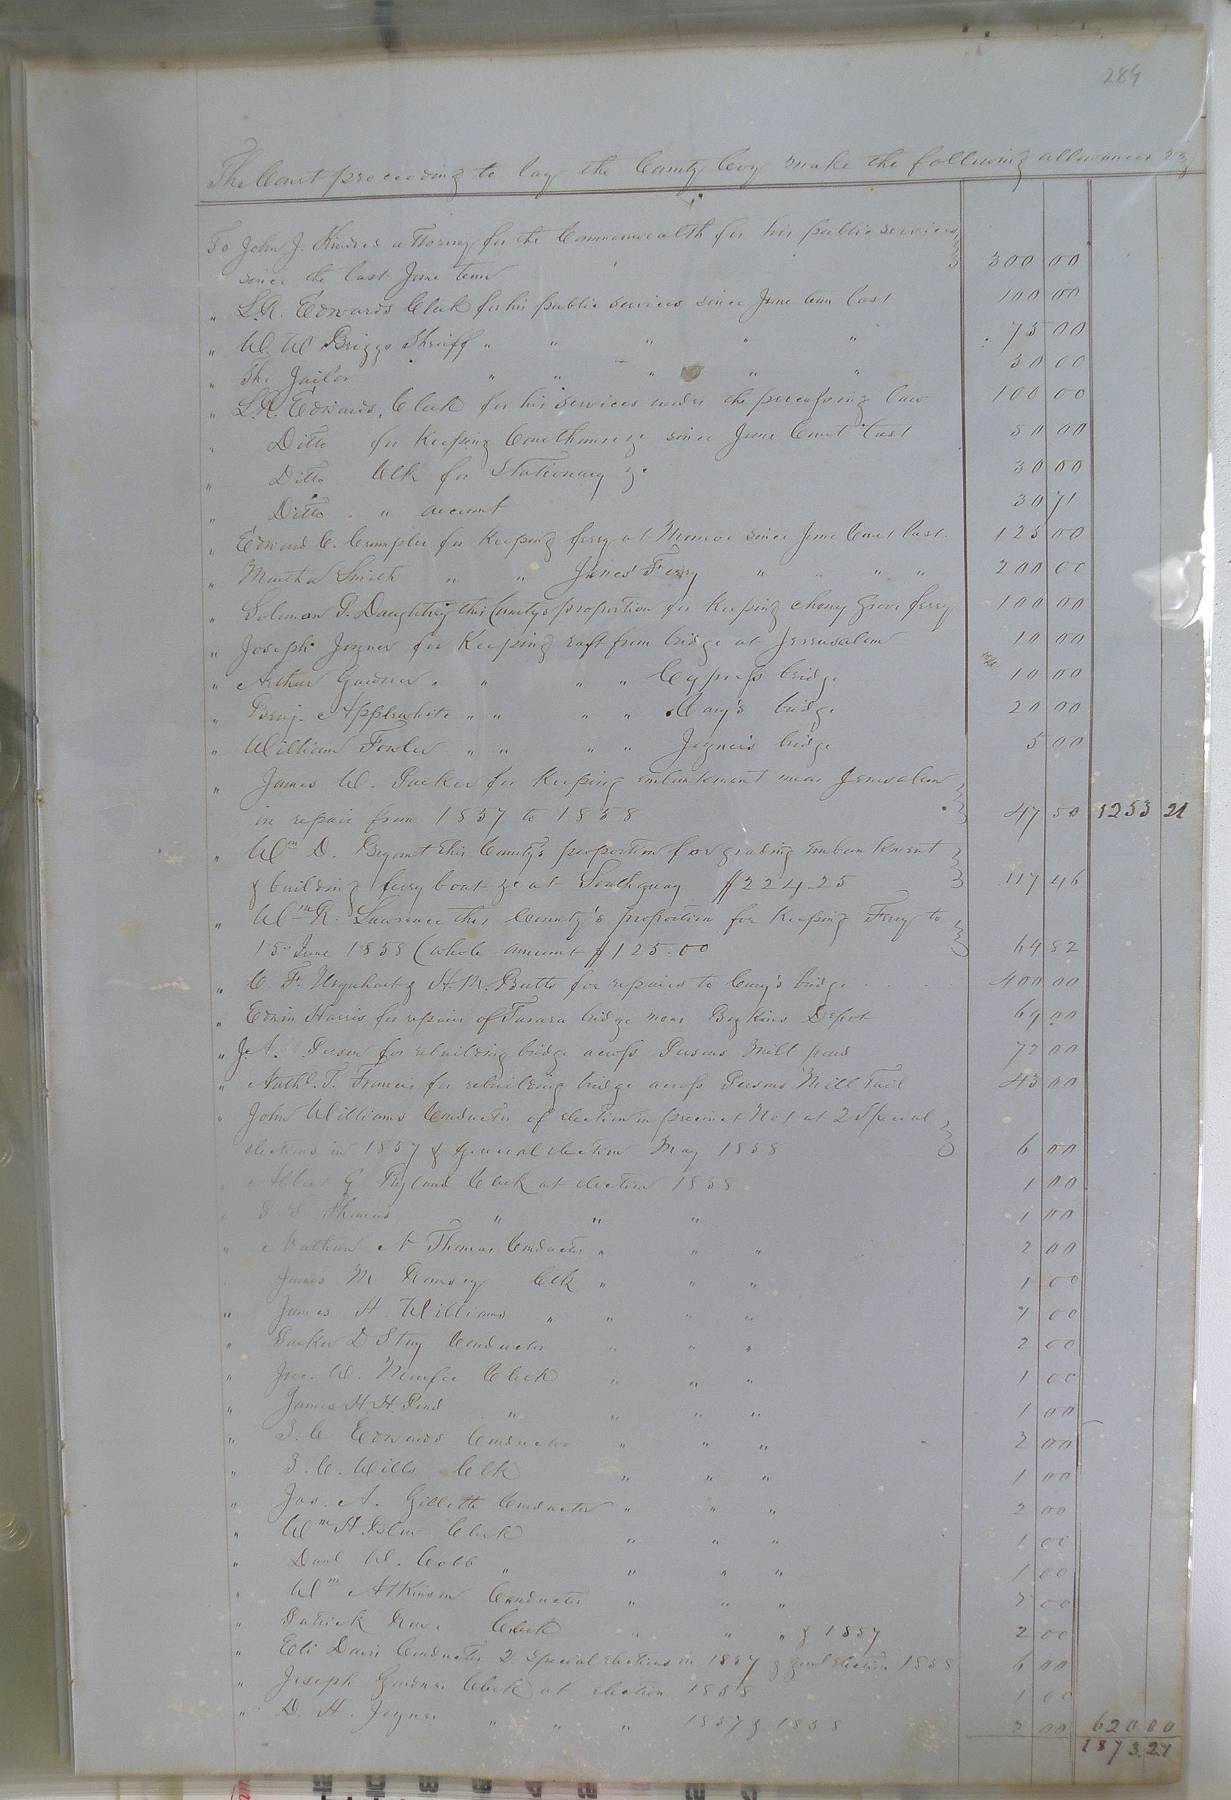 289
The Court proceeding to lay the County Levy make the following allowances viz
To John J. Kindred attorney for the Commonwealth for his public services
since the last June term 300 00
" L.R. Edwards Clerk for his public services since June term last 100 00
" W. W. Briggs Sheriff " " " " " 75 00
" The Jailor " " " " " 30 00
" L.R. Edwards, Clerk for his services under the processioning law 100 00
" Ditto for Keeping Courthouse &c since June Court last 50 00
" Ditto Clk for Stationary &c 30 00
" Ditto " account 30 71
" Edward C. Crumpler for Keeping ferry at Monroe since June Court last. 125 00
" Martha Smith " " Jones' Ferry " " " " 200 00
" Solomon P. Daughtrey this County's proportion for Keeping Cherry Grove ferry 100 00
" Joseph Joyner for Keeping raft from bridge at Jerusalem 10 00
" Arthur Gardner " " " " Cypress bridge 10 00
" Benj. Applewhite " " " " Cary's bridge 20 00
" William Fowler " " " " Joyner's bridge 5 00
" James W. Parker for Keeping embankment near Jerusalem
in repair from 1857 to 1858 47 50 1253 21
" Wm D. Bryant this County's proportion for grading embankment
& building ferry boat &c at Southquay $224.25 117 46
" Wm R. Lawrence this County's proportion for Keeping Ferry to
15 June 1858 (whole amount $125.00 64 82
" C. F. Urquhart & H. M. Butts for repairs to Cary's bridge 400 00
" Edwin Harris for repair of Tarara bridge near Boykins Depot 69.00
" J. A. Person for rebuilding bridge across Persons Mill pond 72 00
" Nathl. T. Francis for rebuilding bridge across Persons Mill Tail 43 00
" John Williams Conductor of election in precinct No 1 at 2 Special
elections in 1857 & general election May 1858 6 00
" Albert G Ryland Clerk at election 1858 1 00
" Thomas " " " 1 00
" Nathan N Thomas Conductor " " " 2 00
" James M Ramsey Clk " " " 1 00
" James H Williams " " " " 1 00
" Conductor " " " 2 00
" Jno. W. Clerk " " " 1 00
" James H. H. " " " " 1 00
" Edwards Conductor " " " 2 00
" Wills Clk " " " 1 00
" Jos. A. Gillette Conductor " " " 2 00
" Wm H. Clerk " " " 1 00
" Danl W. Cobb " " " " 1 00
" Wm Atkinson Conductor " " " 2 00
" Patrick Clerk " " " & 1857 2 00
" Eli Davis Conductor 2 Special elections in 1857 & genl election 1858 6 00
" Joseph Gardner Clerk at election 1858 1 00
" D. H. Joyner " " " 1857 & 1858 2 00 620 00
1873.21